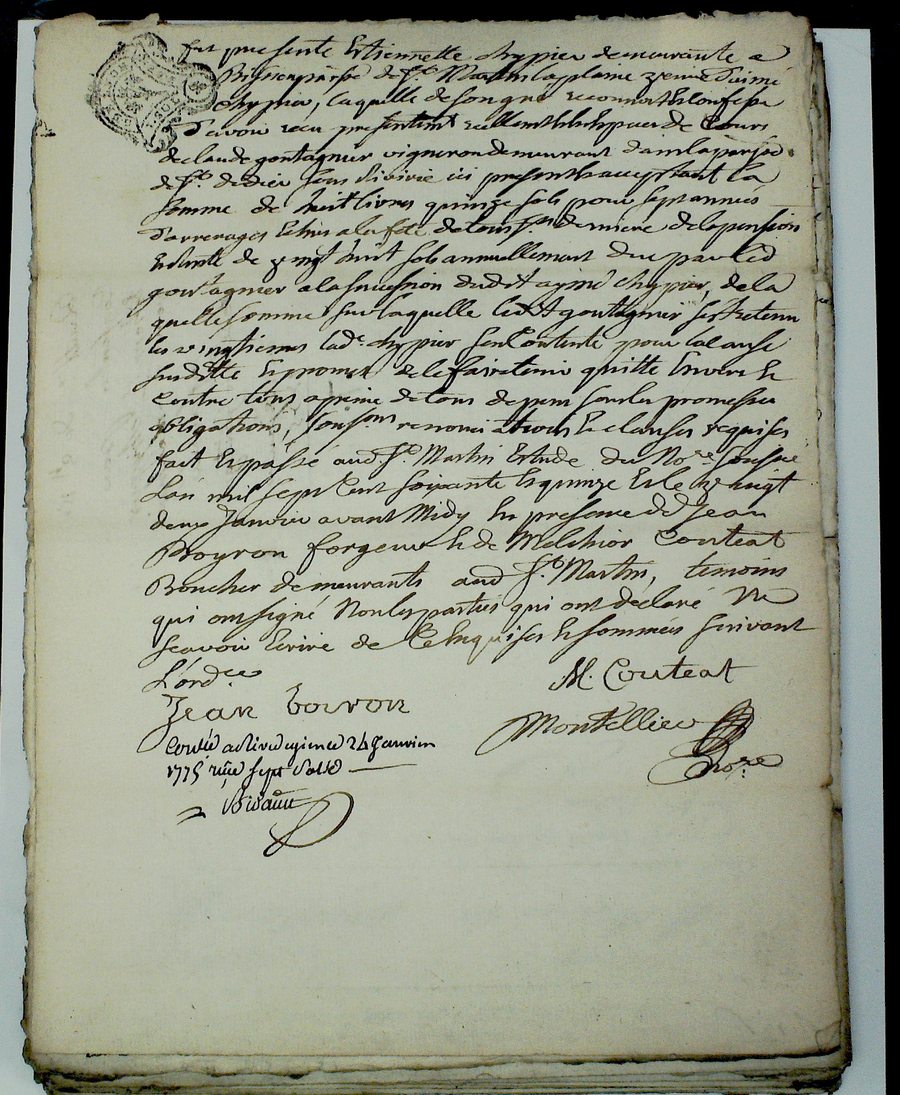 fut presente Etiennette chypier demeurante a
par.sse de St. Martin la plaine veuve d'aimé
chypier, laquelle de son gré reconnoit et confesse
d'avoir reçu presentement reellement en especes de cours
de claude gontagnier vigneron demeurant dans la parsse
de St. didier sous Riverie ici present et acceptant la
somme de huit livres quinze sols pour sept années
d'arrerages echus a la fete de tous sts derniere de la pension
de vingt huit sols annuellement due par led
gontagnier a la succession dudit aymé chypier, de la
quelle somme sur laquelle ledit gontagnier s'est retenu
les vingtiemes lad. chypier s'en contente pour la cause
susditte et promet de le faire tenir quitte envers et
contre tous a peine de tous depens sous les promesses
obligations, soumons renonciations et clauses requises
fait et passé aud St. Martin Etude du Nore. soussé
L'an mil sept cent soixante et quinze et le vingt
deux Janvier avant Midy en presence de Jean
Boyron forgeur et de Melchior Couteat
Boucher demeurants aud St. Martin, temoins
qui ont signé Non les parties qui ont declaré Ne
sçavoir Ecrire de ce Enquises et sommées suivant
L'ordce
M. Couteat
Jean Boiron
Montellier
Nore
Conlé a Rivedegier ce 24 Janvier
1775 reçu sept sols